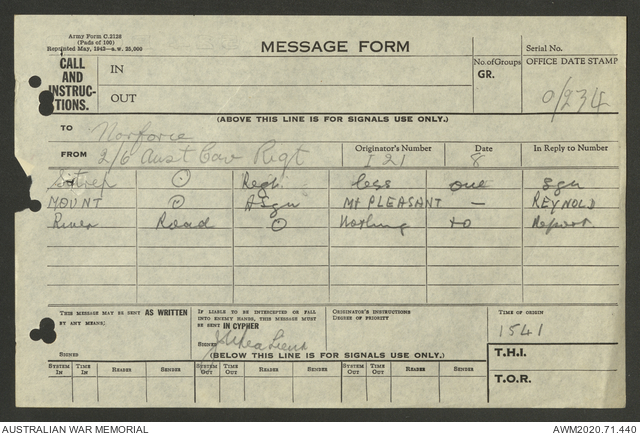 Army Form C.2128
(Pads of 100)
Reprinted May, 1943—a.w. 25,000
MESSAGE FORM
Serial No.
CALL AND INSTRUC-TIONS.
IN
OUT
No. of Groups
GR.
OFFICE DATE STAMP
0/234
(ABOVE THIS LINE IS FOR SIGNALS USE ONLY.)
TO Norforce
FROM 2/6 Aust Cav Regt
Originator's Number
I 21
Date
8
In Reply to Number
Sitrep ⊙ Regt less one Sqn
MOUNT ⊙ A Sqn Mt PLEASANT — REYNOLD
River Road ⊙ Nothing to Report
THIS MESSAGE MAY BE SENT AS WRITTEN BY ANY MEANS.
SIGNED
IF LIABLE TO BE INTERCEPTED OR FALL INTO ENEMY HANDS, THIS MESSAGE MUST BE SENT IN CYPHER
SIGNED Lieut
ORIGINATOR'S INSTRUCTIONS
DEGREE OF PRIORITY
TIME OF ORIGIN
1541
(BELOW THIS LINE IS FOR SIGNALS USE ONLY.)
T.H.I.
SYSTEM IN TIME IN READER SENDER SYSTEM OUT TIME OUT READER SENDER SYSTEM OUT TIME OUT READER SENDER
T.O.R.
AUSTRALIAN WAR MEMORIAL
AWM2020.71.440